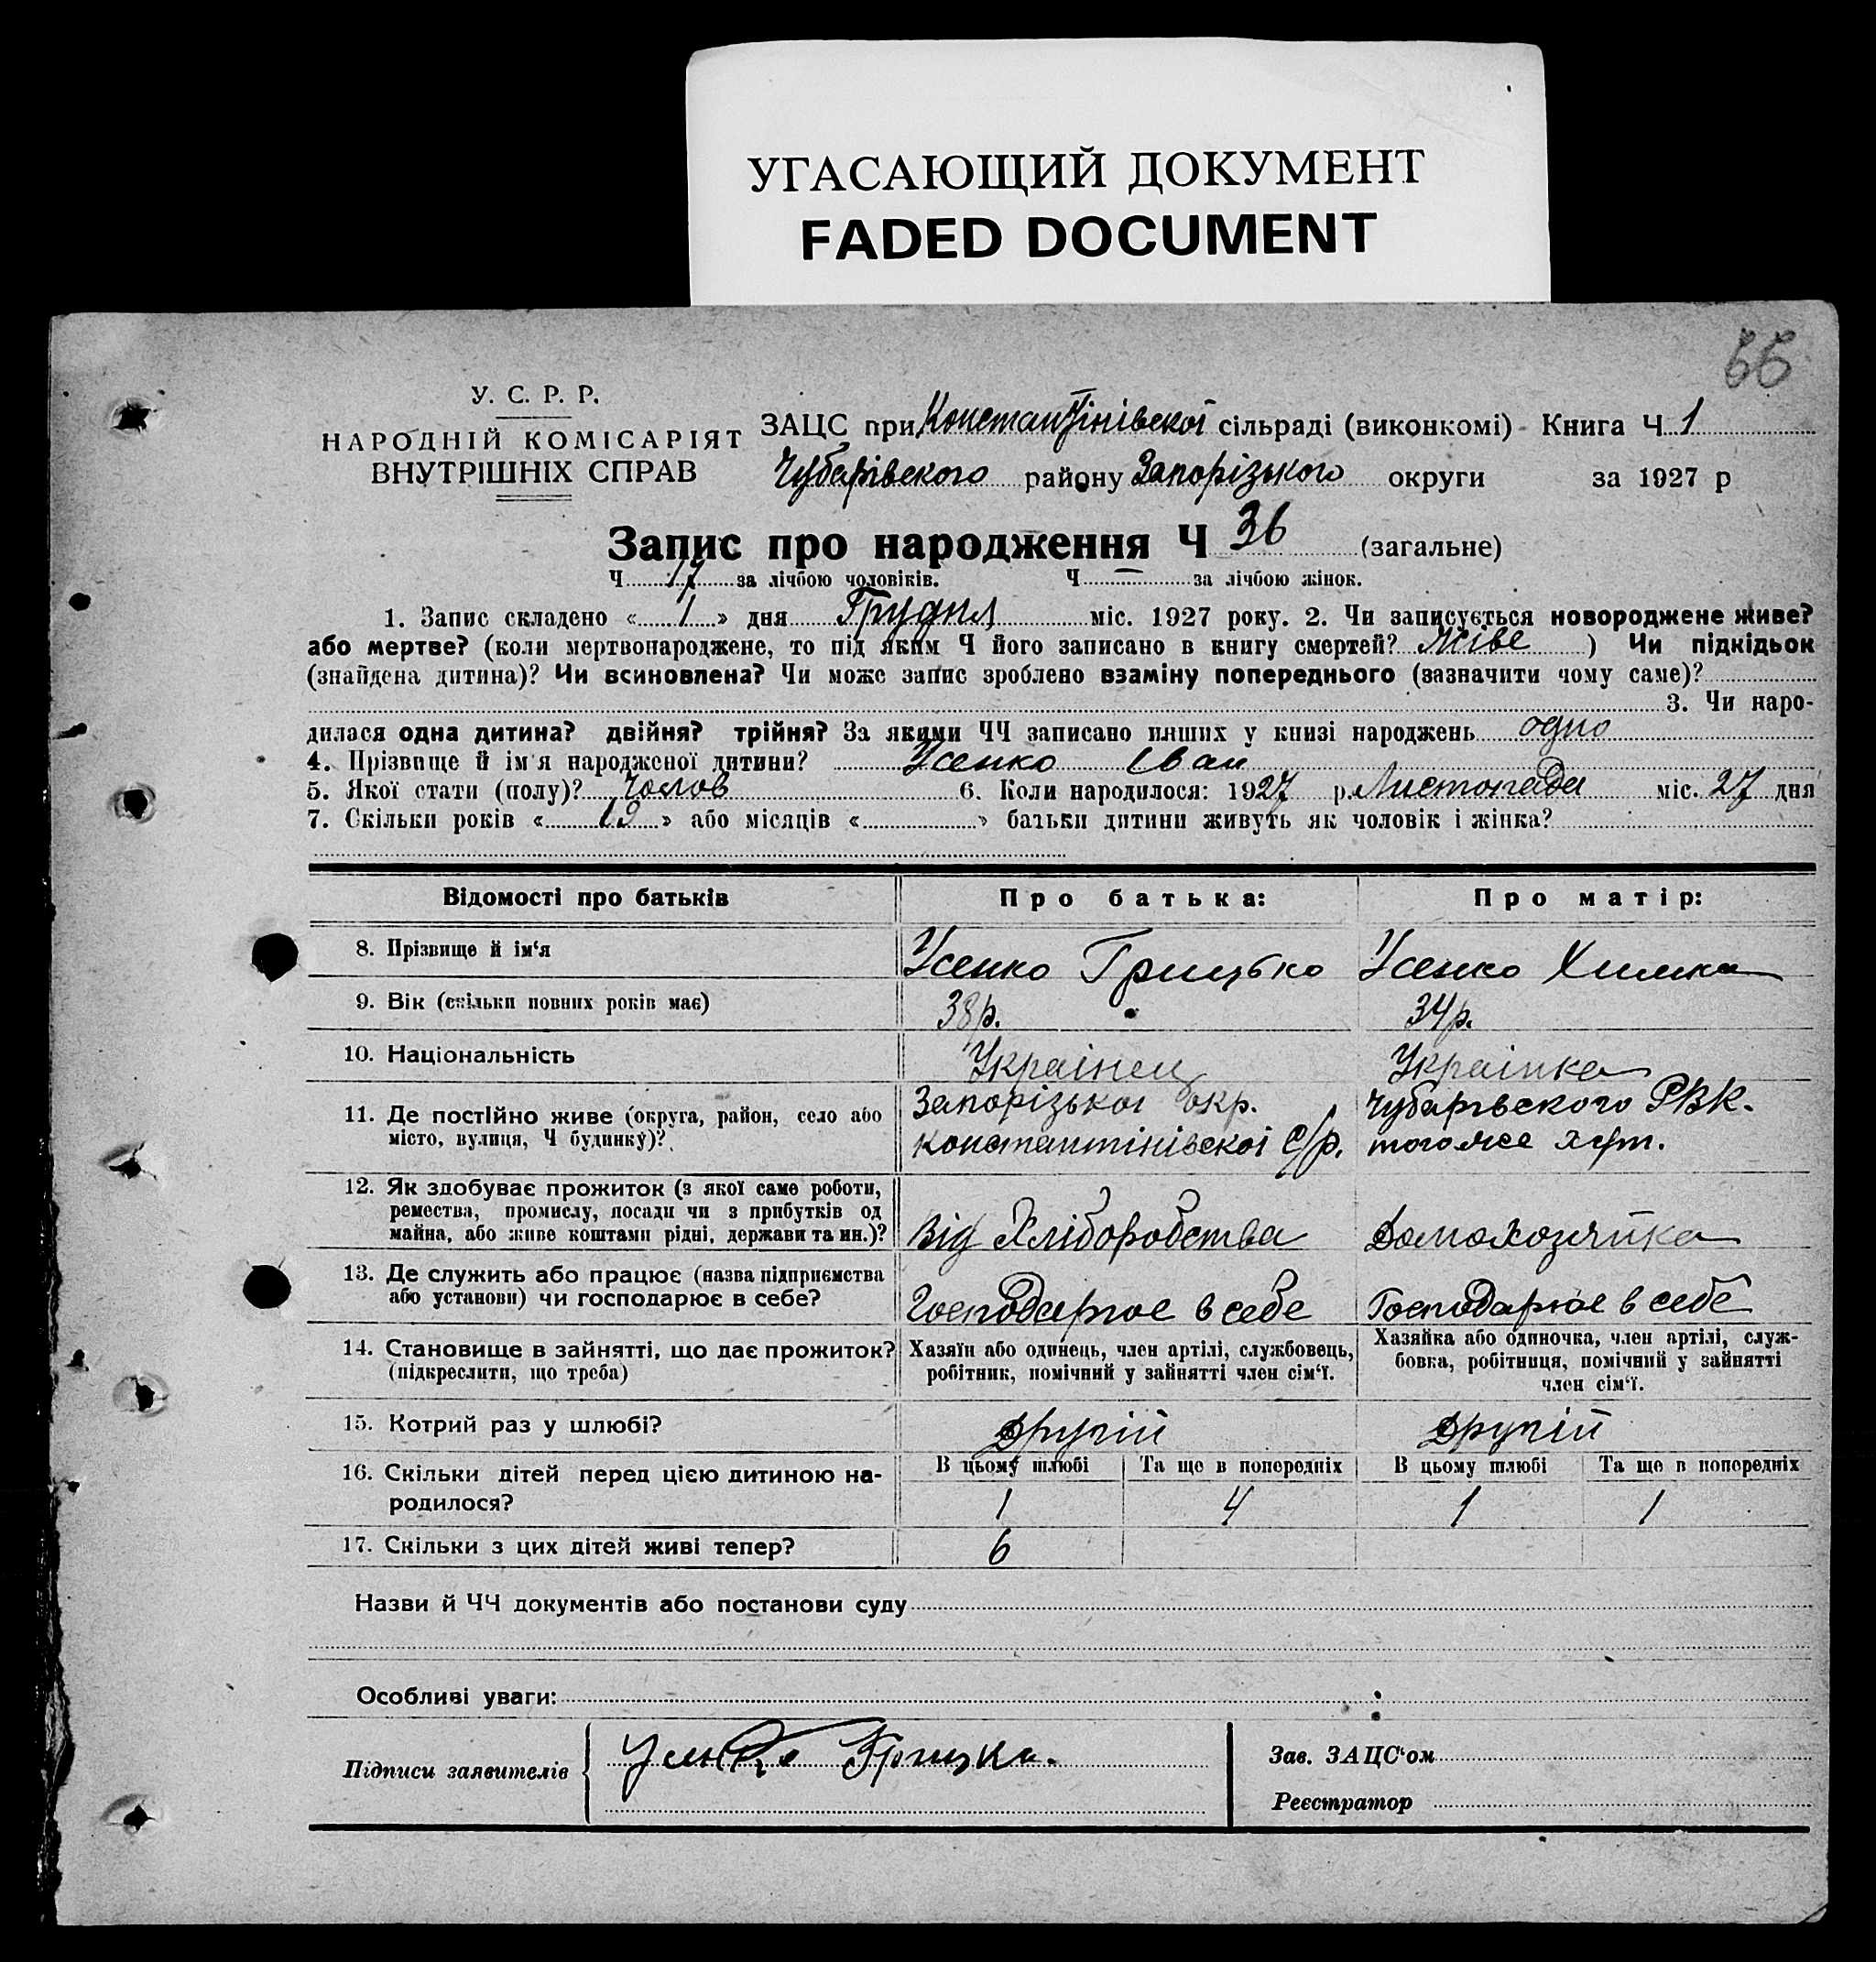 УГАСАЮЩИЙ ДОКУМЕНТ
FADED DOCUMENT
66
У. С. Р. Р.
НАРОДНІЙ КОМІСАРІЯТ
ВНУТРІШНІХ СПРАВ
ЗАЦС при Константінівскої сільраді (виконкомі) Книга Ч 1
Чубарівского району Запорізького округи за 1927 р
Запис про народження Ч 36 (загальне)
Ч 17 за лічбою чоловіків. Ч — за лічбою жінок.
1. Запис складено « 1 » дня Грудня міс. 1927 року. 2. Чи записується новороджене живе?
або мертве? (коли мертвонароджене, то під яким Ч його записано в книгу смертей? Живе ) Чи підкідьок
(знайдена дитина)? Чи всиновлена? Чи може запис зроблено взаміну попереднього (зазначити чому саме)?
3. Чи наро-
дилася одна дитина? двійня? трійня? За якими ЧЧ записано инших у книзі народжень одно
4. Прізвище й ім'я народженої дитини? Усенко Іван
5. Якої стати (полу)? Чолов 6. Коли народилося: 1927 р. Листопада міс. 27 дня
7. Скільки років « 13 » або місяців « » батьки дитини живуть як чоловік і жінка?
Відомості про батьків Про батька: Про матір:
8. Прізвище й ім'я Усенко Грицько Усенко Химка
9. Вік (скільки повних років має) 38 р. 34 р.
10. Національність Українец Українка
11. Де постійно живе (округа, район, село або Запорізькоі окр. Чубарівского РВК.
місто, вулиця, Ч будинку)? Константінівскоі с/р. того же хут.
12. Як здобуває прожиток (з якої саме роботи,
ремества, промислу, посади чи з прибутків од
майна, або живе коштами рідні, держави та ин.)? Від Хліборобства Домохозяйка
13. Де служить або працює (назва підприємства
або установи) чи господарює в себе? Господарює в себе Господарює в себе
14. Становище в зайнятті, що дає прожиток? Хазяїн або одинець, член артілі, службовець, Хазяйка або одиночка, член артілі, служ-
(підкреслити, що треба) робітник, помічний у зайнятті член сім'ї. бовка, робітниця, помічний у зайнятті
член сім'ї.
15. Котрий раз у шлюбі? другій другій
16. Скільки дітей перед цією дитиною на- В цьому шлюбі Та ще в попередніх В цьому шлюбі Та ще в попередніх
родилося? 1 4 1 1
17. Скільки з цих дітей живі тепер? 6
Назви й ЧЧ документів або постанови суду
Особливі уваги:
Підписи заявителів Грицко. Зав. ЗАЦС'ом
Реєстратор